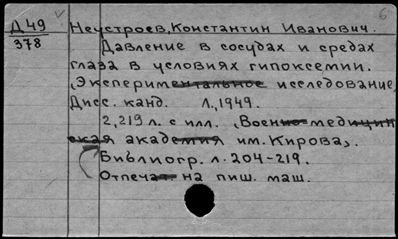 Д 49
378
Неустроев, Константин Иванович.
Давление в сосудах и средах
глаза в условиях гипоксемии.
(Экспериментальное исследование)
Дисс. канд. Л., 1949.
2, 219 л. с илл. (Военно-медицин
ская академия им. Кирова).
Библиогр. л. 204-219.
Отпечат. на пиш. маш.